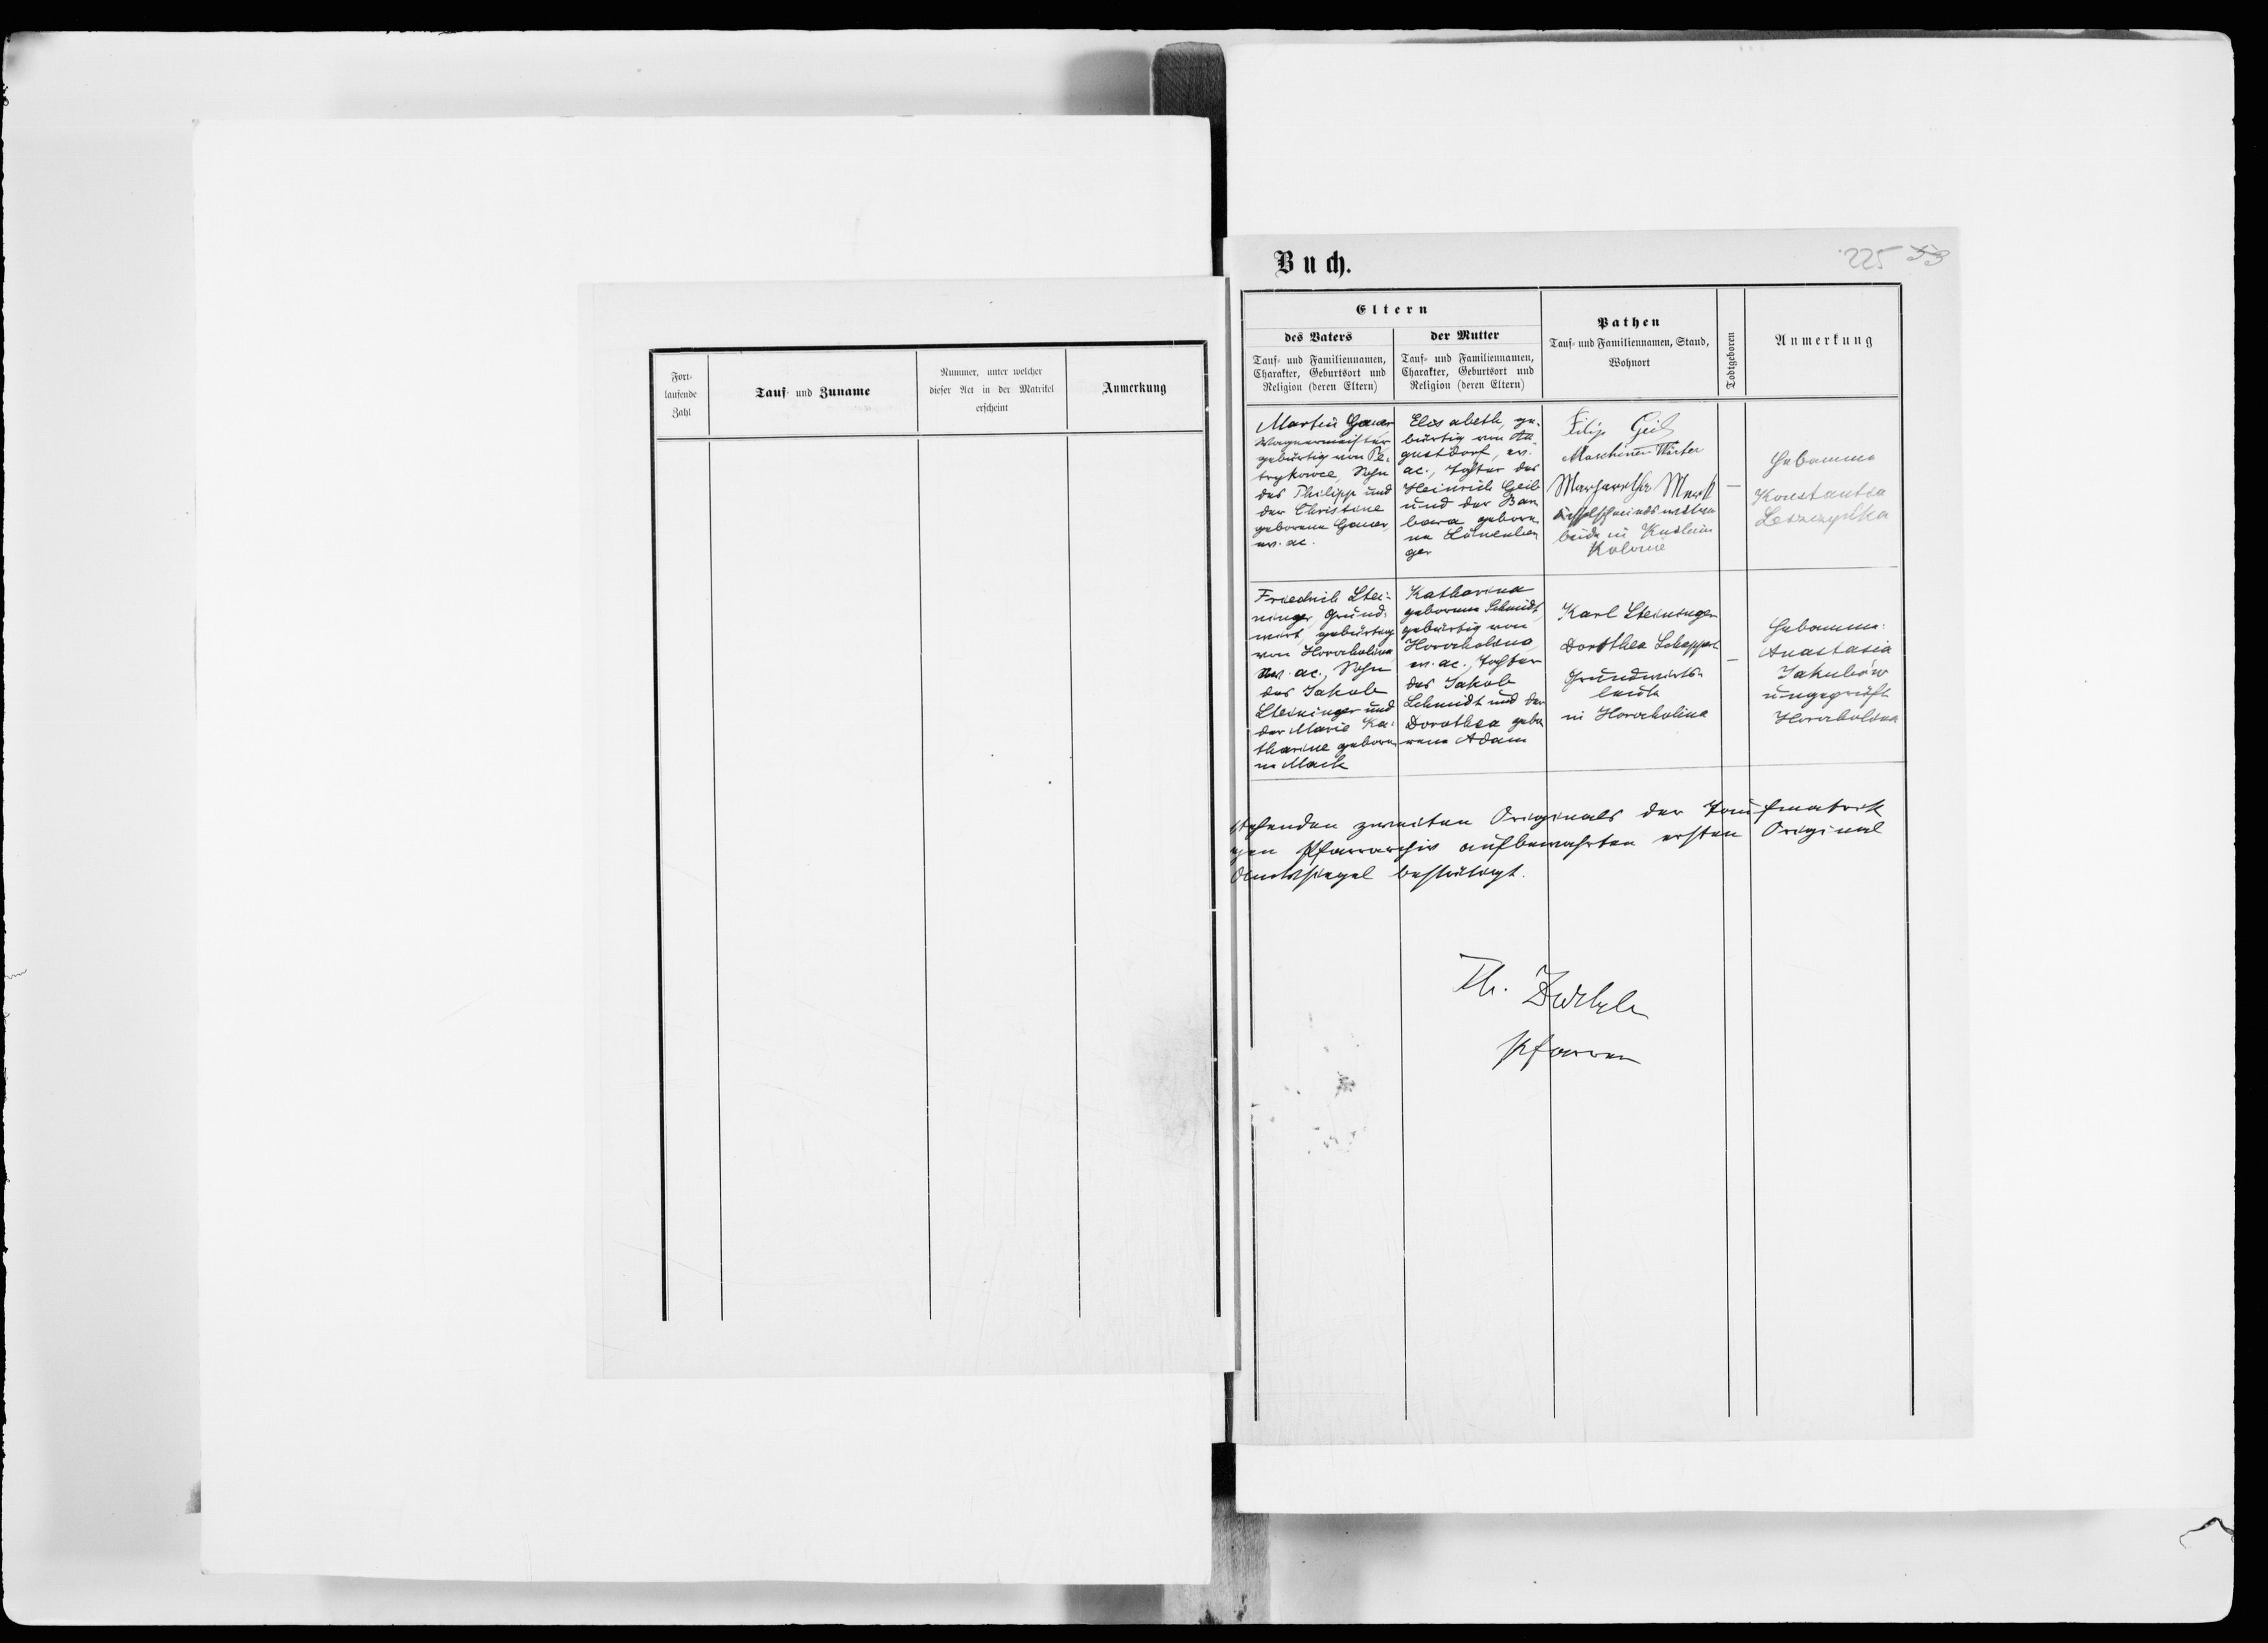 Fort-
laufende
Zahl
Tauf- und Zuname
Nummer, unter welcher
dieser Act in der Matrikel
erscheint
Anmerkung
Buch.
225 53
Eltern
des Vaters
Tauf- und Familiennamen,
Charakter, Geburtsort und
Religion (deren Eltern)
der Mutter
Tauf- und Familiennamen,
Charakter, Geburtsort und
Religion (deren Eltern)
Pathen
Tauf- und Familiennamen, Stand,
Wohnort
Todtgeboren
Anmerkung
Martin Gauer
Wagnermeister
gebürtig von Pe-
trykowce, Sohn
des Philipp und
der Christine
geborene Gauer,
ev. ac.
Elisabeth, ge-
bürtig von Au-
gustdorf, ev.
ac., Tochter des
Heinrich Geib
und der Bar
bara gebore-
ne
ger
Filip Geib
Maschinen Wärter
Margaretha
beide in
Kolonie
—
Hebamme
Konstantia
Leszczyńska
Friedrich Stei-
ninger, Grund-
wirt, gebürtig
von Horocholina
ev. ac., Sohn
des Jakob
Steininger und
der Marie Ka-
tharine gebore-
ne Mack
Katharina
geborene Schmidt,
gebürtig von
Horocholina,
ev. ac., Tochter
des Jakob
Schmidt und der
Dorothea gebo
rene Adam
Karl Steininger
Dorothea Schappert
Grundwirts-
leute
in Horocholina
—
Hebamme:
Anastasia
Jakubów
ungeprüft
Horocholina
stehenden zweiten Originals der Taufmatrik
gen Pfarrarchiv aufbewahrten ersten Original
Amtssiegel bestätigt.
Th.
Pfarrer